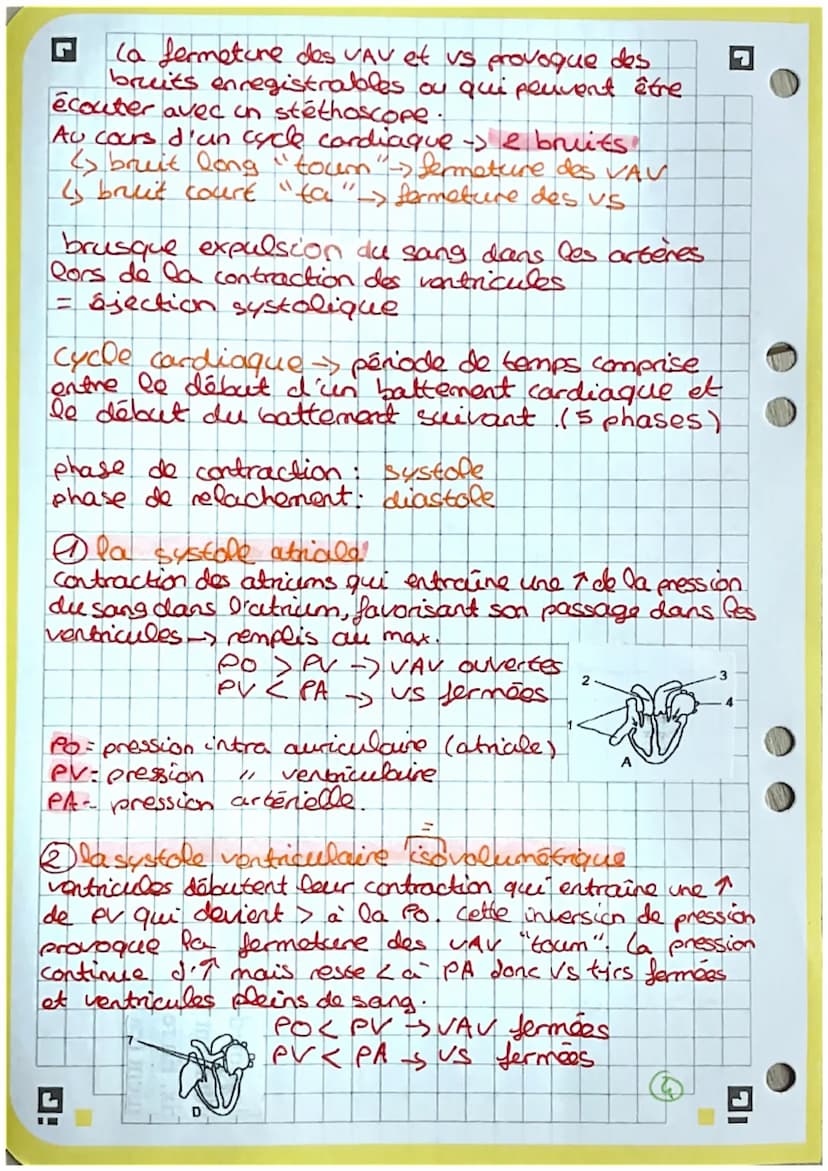 La fermeture des VAV et VS provoque des
bruits enregistrables ou qui peuvent être
écouter avec un stéthoscope.
Au cours d'un cycle cardiaque -> 2 bruits
↳ bruit long "toum" -> fermeture des VAV
↳ bruit court "ta" -> fermeture des VS
brusque expulsion du sang dans les artères
lors de la contraction des ventricules
= éjection systolique
Cycle cardiaque -> période de temps comprise
entre le début d'un battement cardiaque et
le début du battement suivant. (5 phases)
phase de contraction : systole
phase de relachement : diastole
① la systole atriale
contraction des atriums qui entraîne une ↑ de la pression
du sang dans l'atrium, favorisant son passage dans les
ventricules -> remplis au max.
PO > PV -> VAV ouvertes
PV < PA -> VS fermées
2
3
4
1
A
PO = pression intra auriculaire (atriale)
PV = pression " ventriculaire
PA = pression artérielle.
=
② la systole ventriculaire isovolumétrique
ventricules débutent leur contraction qui entraine une ↑
de PV qui devient > à la PO. Cette inversion de pression
provoque la fermeture des VAV "toum". La pression
continue d'↑ mais resse < à PA donc VS tjrs fermées
et ventricules pleins de sang.
PO < PV -> VAV fermées
PV < PA -> VS fermées
7
D
4